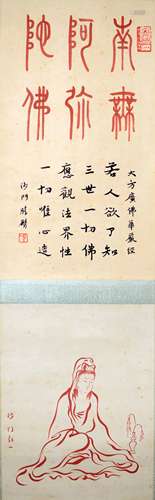 南無
阿弥
陀佛
大方廣佛華嚴經
若人欲了知
三世一切佛
應觀法界性
一切惟心造
沙門
沙門弘一